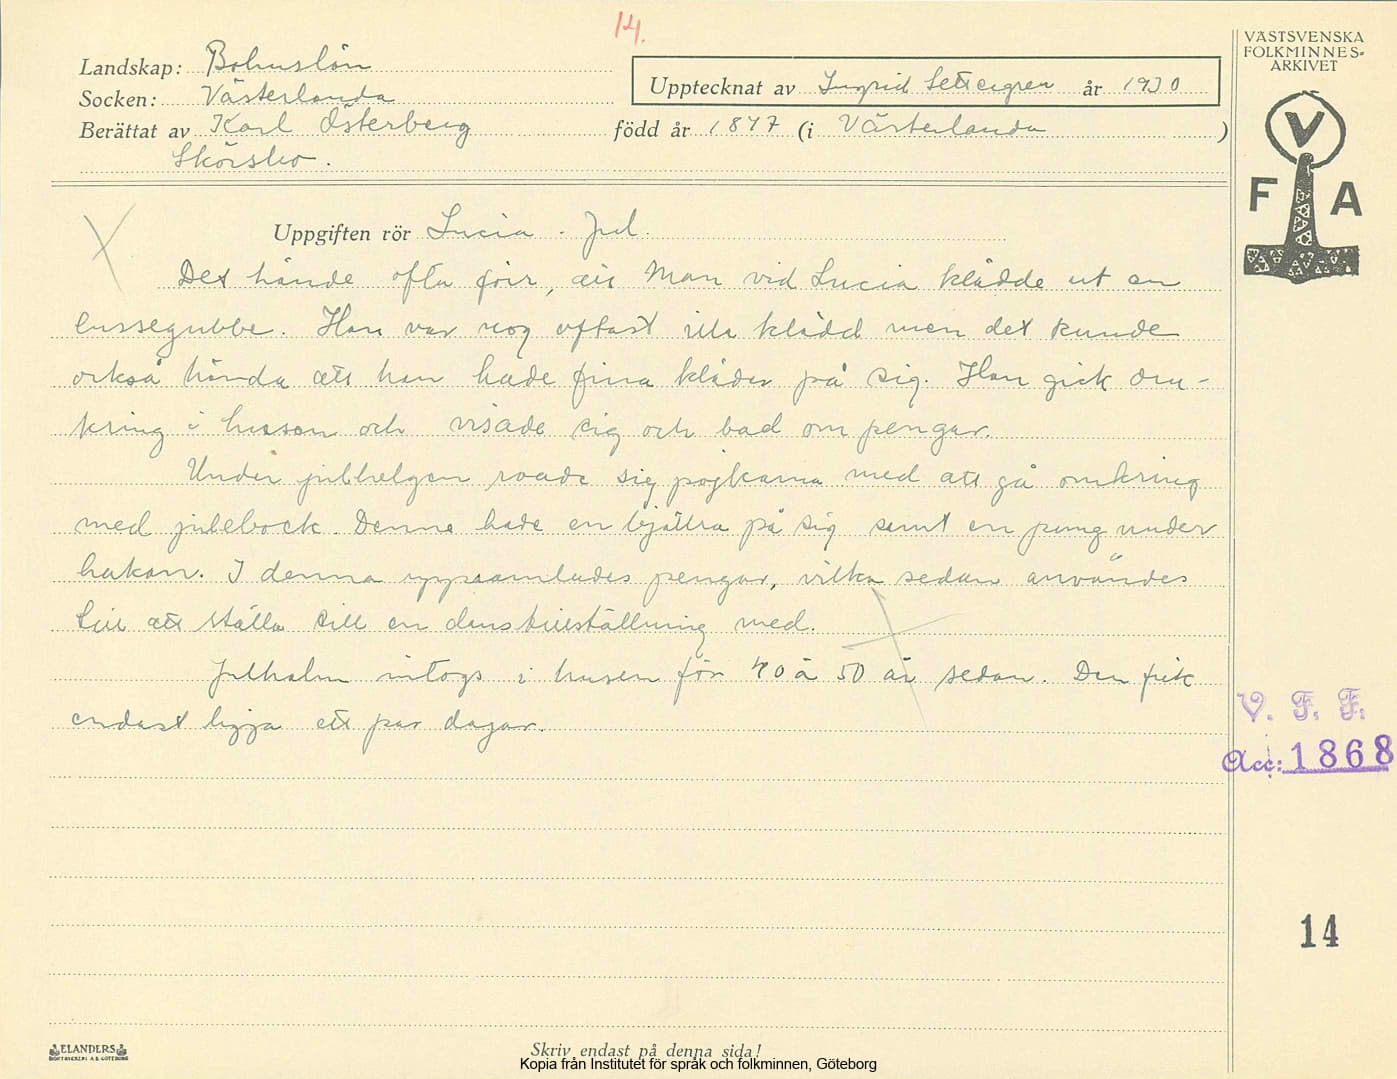 14.
Landskap: Bohuslän
Socken: Västerlanda
Berättat av Karl Österberg
Skörsbo.
Upptecknat av Ingrid år 1930
född år 1847 (i Västerlanda)
VÄSTSVENSKA
FOLKMINNES-
ARKIVET
V
F A
Uppgiften rör Lucia - Jul.
Det hände ofta förr, att man vid Lucia klädde ut en
lussegubbe. Han var nog oftast illa klädd men det kunde
också hända att han hade fina kläder på sig. Han gick om-
kring i husen och visade sig och bad om pengar.
Under julhelgen roade sig pojkarna med att gå omkring
med julebock. Denne hade en bjällra på sig samt en pung under
hakan. I denna uppsamlades pengar, vilka sedan användes
till att ställa till en danstillställning med.
Julhalm intogs i husen för 40 à 50 år sedan. Den fick
endast ligga ett par dagar.
V. F. F.
Acc: 1868
14
ELANDERS
BOKTRYCKERI A.B. GÖTEBORG
Skriv endast på denna sida!
Kopia från Institutet för språk och folkminnen, Göteborg